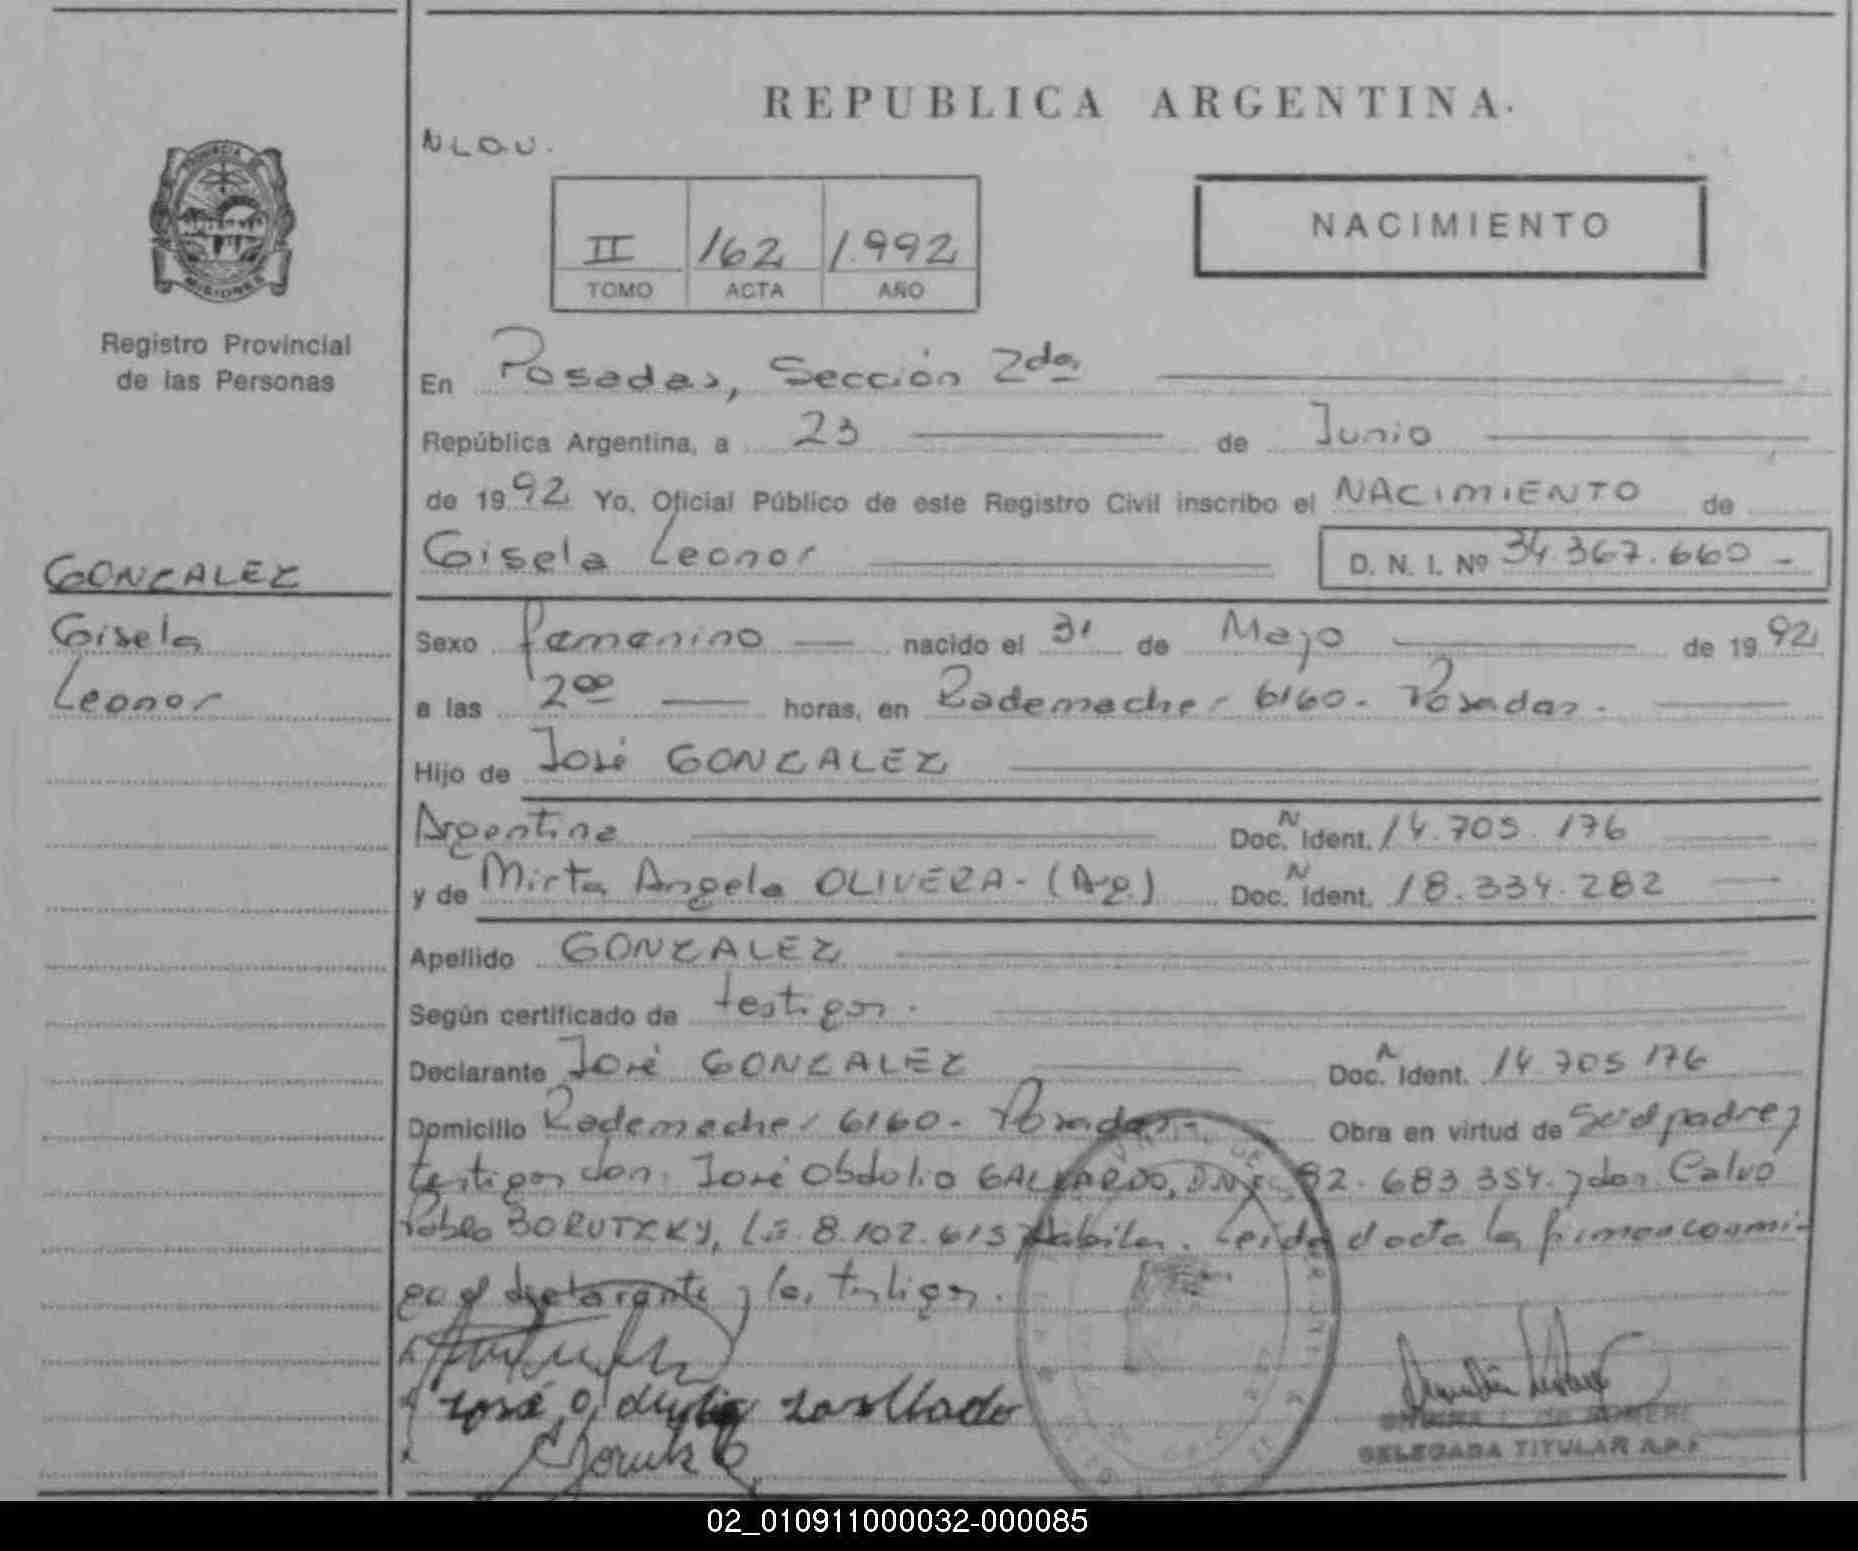 REPUBLICA ARGENTINA.
PROVINCIA DE
MISIONES
Registro Provincial
de las Personas
II 162 1.992
TOMO ACTA AÑO
NACIMIENTO
En Posadas, Sección 2da
República Argentina, a 23 de Junio
de 1992 Yo, Oficial Público de este Registro Civil inscribo el NACIMIENTO de
Gisela Leonor D. N. I. Nº 34.367.660 -
GONZALEZ
Gisela
Leonor
Sexo femenino nacido el 31 de Mayo de 1992
a las 2 00 horas, en Rademacher 6160 - Posadas.
Hijo de José GONZALEZ
Argentina Doc. N Ident. 14.705.176
y de Mirta Angela OLIVERA - (Arg.) Doc. N Ident. 18.334.282
Apellido GONZALEZ
Según certificado de testigos.
Declarante José GONZALEZ Doc. N Ident. 14 705 176
Domicilio Rademacher 6160 - Posadas - Obra en virtud de Ser el padre y
testigos don José Obdulio GALLARDO, D.N.I. 92.683.354 y don Calvo
Pablo BORUTZKY, L.E. 8.102.615 Hábiles. Leída el acta la firman conmi-
go el declarante y los testigos.
DELEGADA TITULAR R.P.P.
02_010911000032-000085